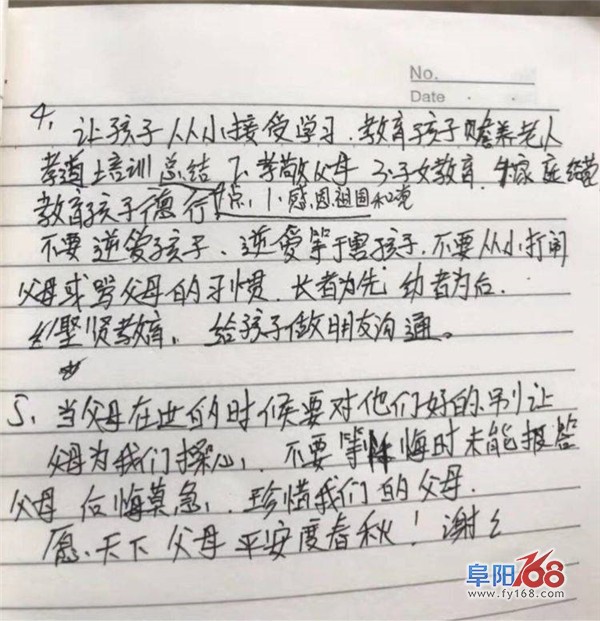 No.
Date
4、让孩子从小接受学习.教育孩子赡养老人
孝道上培训总结 2、孝敬父母 3、子女教育.4家庭经营
教育孩子德行 点、1、感恩祖国和党
不要逆爱孩子、逆爱等于害孩子.不要从小打闹
父母或骂父母的习惯.长者为先 幼者为后.
圣贤教育,给孩子做朋友沟通。
5、当父母在世的时候要对他们好的.别让
父母为我们操心,不要等 悔时未能报答
父母 后悔莫急,.珍惜我们的父母.
愿、天下父母平安度春秋!谢
阜阳168
www.fy168.com